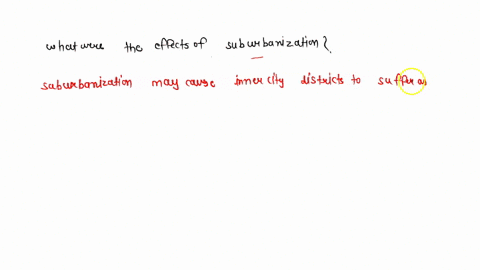 what were the effects of suburbanization?
suburbanization may cause inner city districts to suffer as